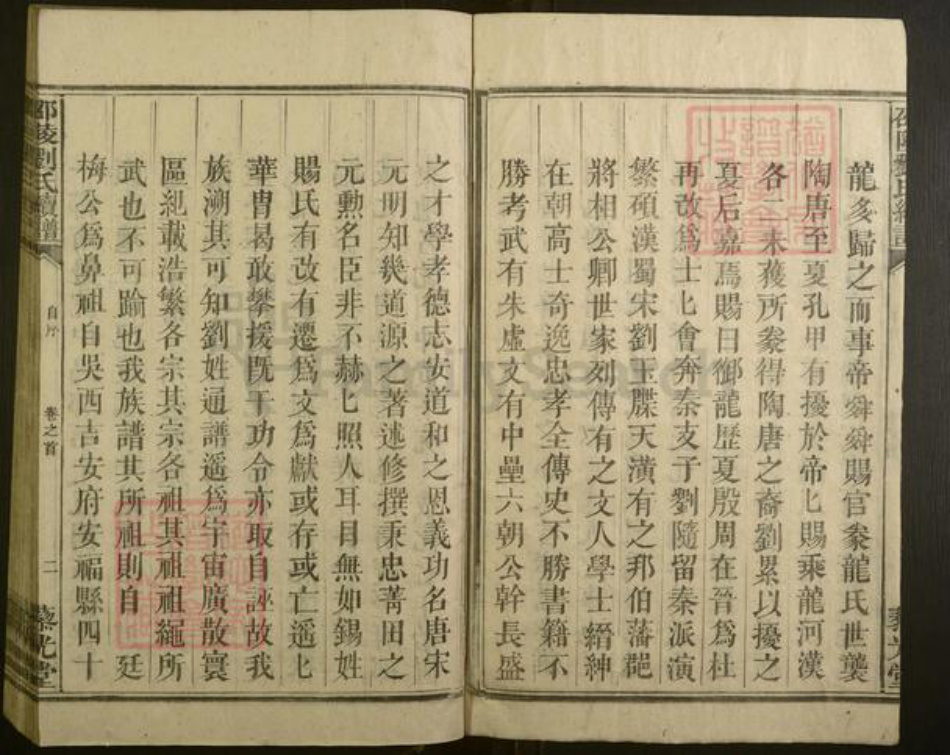 龍多歸之而事帝舜舜賜官豢龍氏世襲
陶唐至夏孔甲有擾於帝匕賜乘龍河漢
各二未獲所豢得陶唐之裔劉累以擾之
夏后嘉焉賜曰御龍歷夏殷周在晉爲杜
再改爲士匕會奔秦支子劉隨留秦派演
繁碩漢蜀宋劉玉牒天潢有之邦伯藩郡
將相公卿世家列傳有之文人學士縉紳
在朝高士奇逸忠孝全傳史不勝書籍不
勝考武有朱虛文有中壘六朝公幹長盛
之才學孝德志安道和之恩義功名唐宋
元明知幾道源之著述修撰秉忠菁田之
元勲名臣非不赫匕照人耳目無如錫姓
賜氏有改有遷爲文爲獻或存或亡遥匕
華冑曷敢攀援旣干功令亦取自誣故我
族溯其可知劉姓通譜遥爲宇宙廣散寰
區紀載浩繁各宗其宗各祖其祖祖繩所
武也不可踰也我族譜其所祖則自廷
梅公爲鼻祖自吳西吉安府安福縣四十
邵陵劉氏續譜
自序
卷之首
二
藜光堂